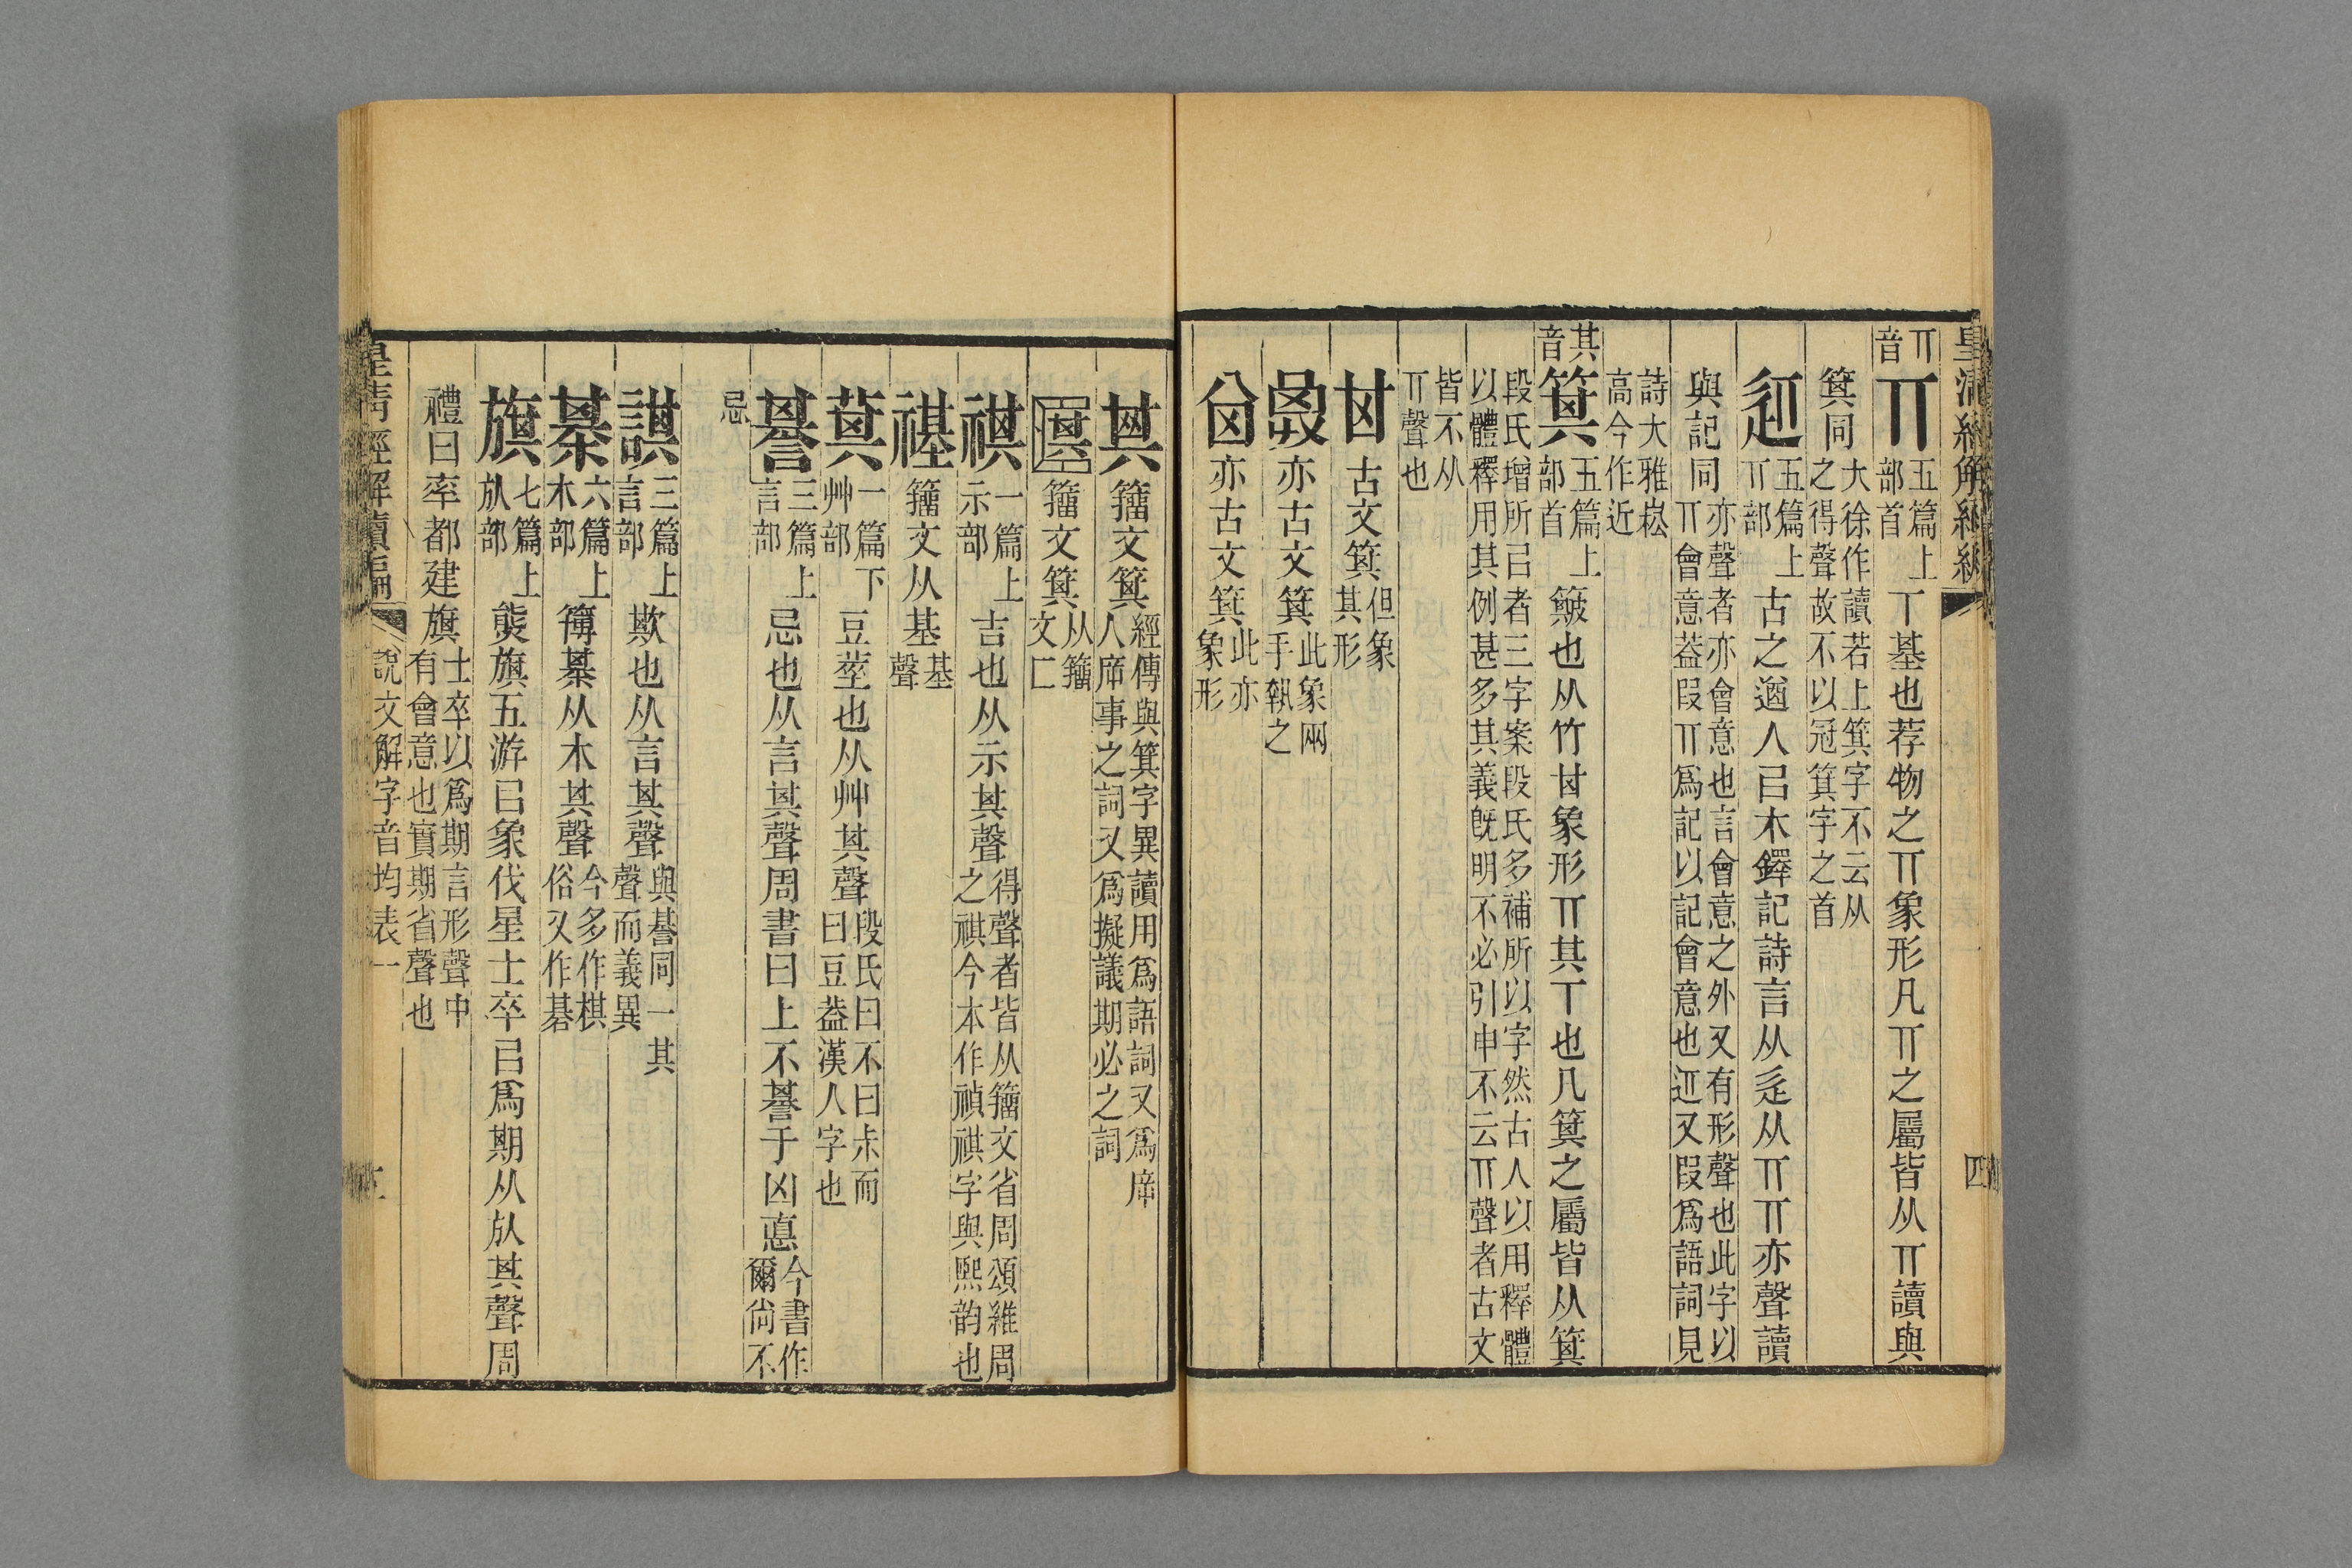 皇清經解續編
四
丌音
丌五篇上部首丅基也荐物之丌象形凡丌之屬皆从丌讀與
箕同大徐作讀若上箕字不云从之得聲故不以冠箕字之首
𨒌五篇上丌部古之遒人㠯木鐸記詩言从辵从丌丌亦聲讀
與記同亦聲者亦會意也言會意之外又有形聲也此字以丌會意葢叚丌爲記以記會意也𨒌又叚爲語詞見
詩大雅崧高今作近
其音
箕五篇上部首簸也从竹𠀠象形丌其丅也凡箕之屬皆从箕
段氏增所㠯者三字案段氏多補所以字然古人以用釋體以體釋用其例甚多其義旣明不必引申不云丌聲者古文
皆不从丌聲也
𠀠古文箕但象其形
𠔝亦古文箕此象兩手執之
𠔛亦古文箕此亦象形
其籒文箕經傳與箕字異讀用爲語詞又爲㡿人㡿事之詞又爲擬議期必之詞
𠥩籒文箕从籒文匚
祺一篇上示部吉也从示其聲得聲者皆从籒文省周頌維周之祺今本作禎祺字與熙韵也
禥籒文从基基聲
萁一篇下艸部豆莖也从艸其聲段氏曰不曰尗而曰豆葢漢人字也
諅三篇上言部忌也从言其聲周書曰上不諅于凶悳今書作爾尙不
忌
諆三篇上言部欺也从言其聲與諅同一其聲而義異
棊六篇上木部簙棊从木其聲今多作棋俗又作碁
旗七篇上㫃部熊旗五游㠯象伐星士卒㠯爲期从㫃其聲周
禮曰率都建旗士卒以爲期言形聲中有會意也實期省聲也
皇清經解續編
說文解字音均表一